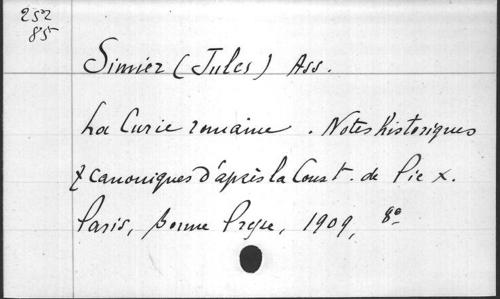 252
85
Simier (Jules) Ass.
La Curie romaine. Notes historiques
& canoniques d'après la Const. de Pie X.
Paris, Bonne Presse, 1909, 8º